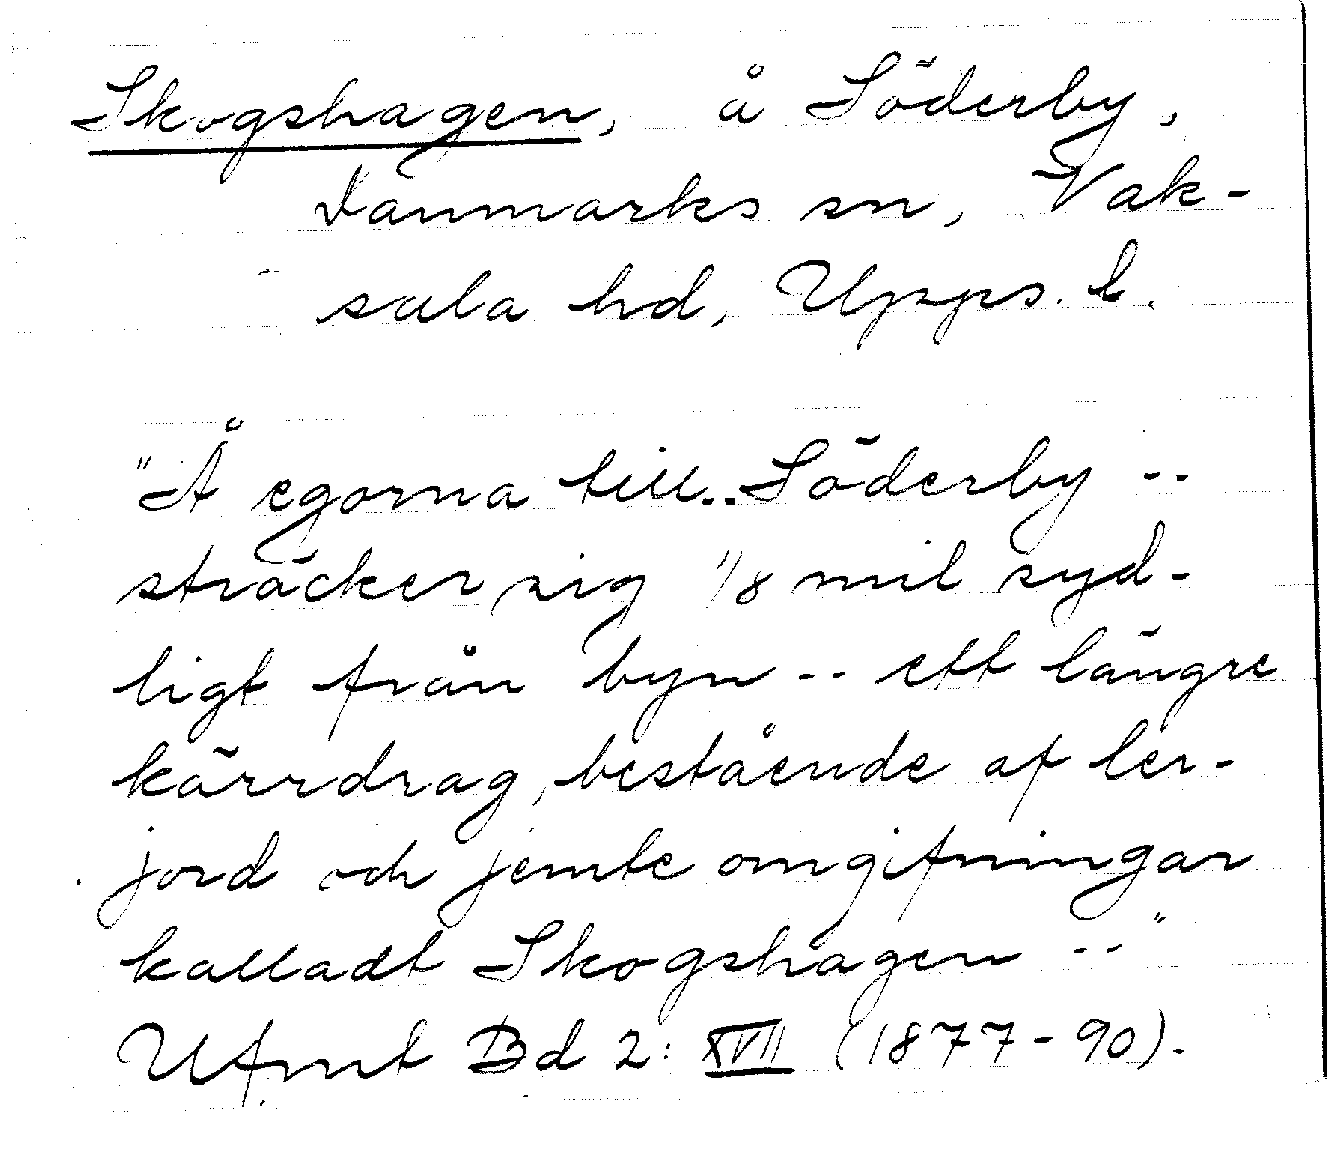 Skogshagen, å Söderby,
Danmarks sn, Vak-
sala hd, Upps. l.
"Å egorna till.. Söderby --
sträcker sig 1/8 mil syd-
ligt från byn -- ett längre
kärrdrag, bestående af ler-
jord och jemte omgifningar
kalladt Skogshagen --"
Ufmt Bd 2: XVII (1877-90).